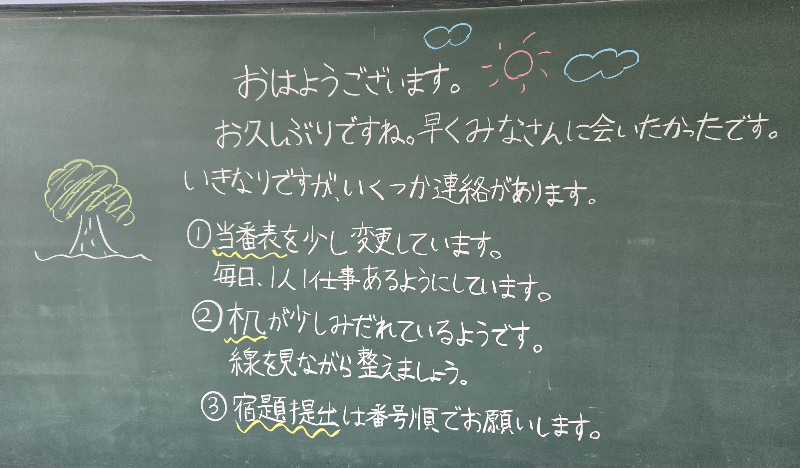 おはようございます。
お久しぶりですね。早くみなさんに会いたかったです。
いきなりですが、いくつか連絡があります。
①当番表を少し変更しています。
毎日、1人1仕事あるようにしています。
②机が少しみだれているようです。
線を見ながら整えましょう。
③宿題提出は番号順でお願いします。